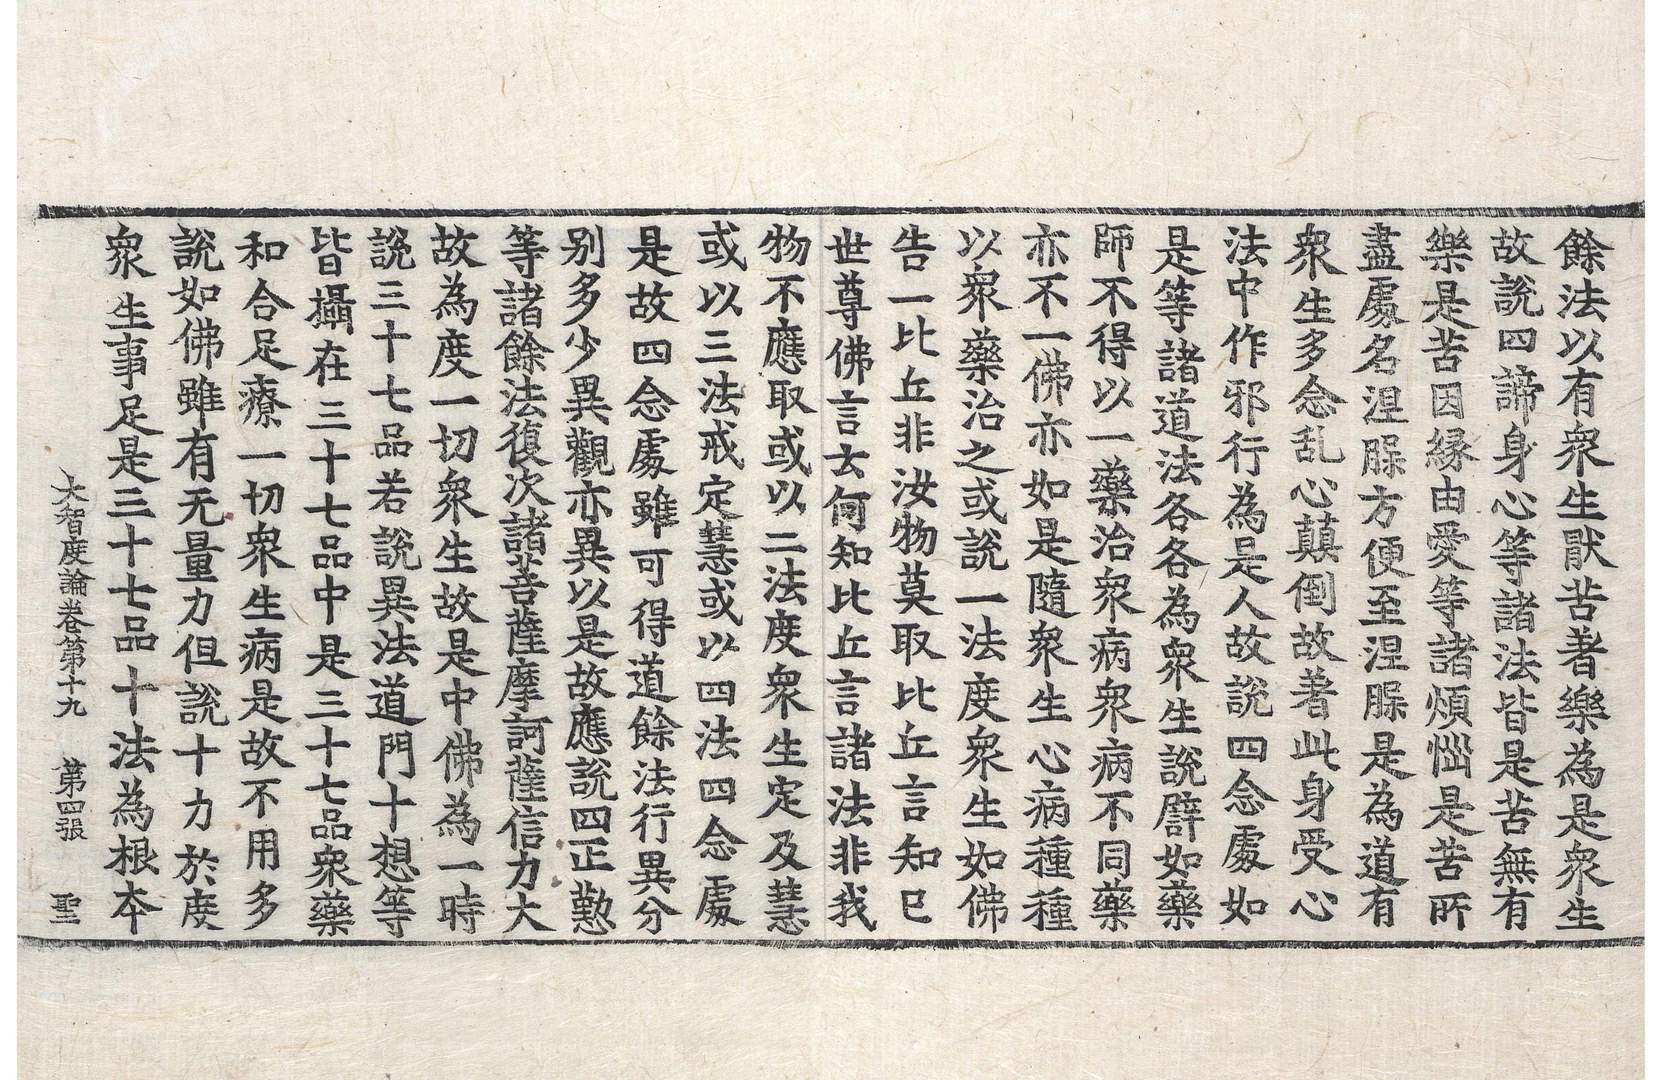 餘法以有衆生猒苦著樂為是衆生
故說四諦身心等諸法皆是苦無有
樂是苦因緣由愛等諸煩惱是苦所
盡處名涅槃方便至涅槃是為道有
衆生多念乱心顛倒故著此身受心
法中作邪行為是人故說四念處如
是等諸道法各各為衆生說譬如藥
師不得以一藥治衆病衆病不同藥
亦不一佛亦如是隨衆生心病種種
以衆藥治之或說一法度衆生如佛
告一比丘非汝物莫取比丘言知已
世尊佛言云何知比丘言諸法非我
物不應取或以二法度衆生定及慧
或以三法戒定慧或以四法四念處
是故四念處雖可得道餘法行異分
別多少異觀亦異以是故應說四正懃
等諸餘法復次諸菩薩摩訶薩信力大
故為度一切衆生故是中佛為一時
說三十七品若說異法道門十想等
皆攝在三十七品中是三十七品衆藥
和合足療一切衆生病是故不用多
說如佛雖有无量力但說十力於度
衆生事足是三十七品十法為根本
大智度論卷第十九 第四張 聖